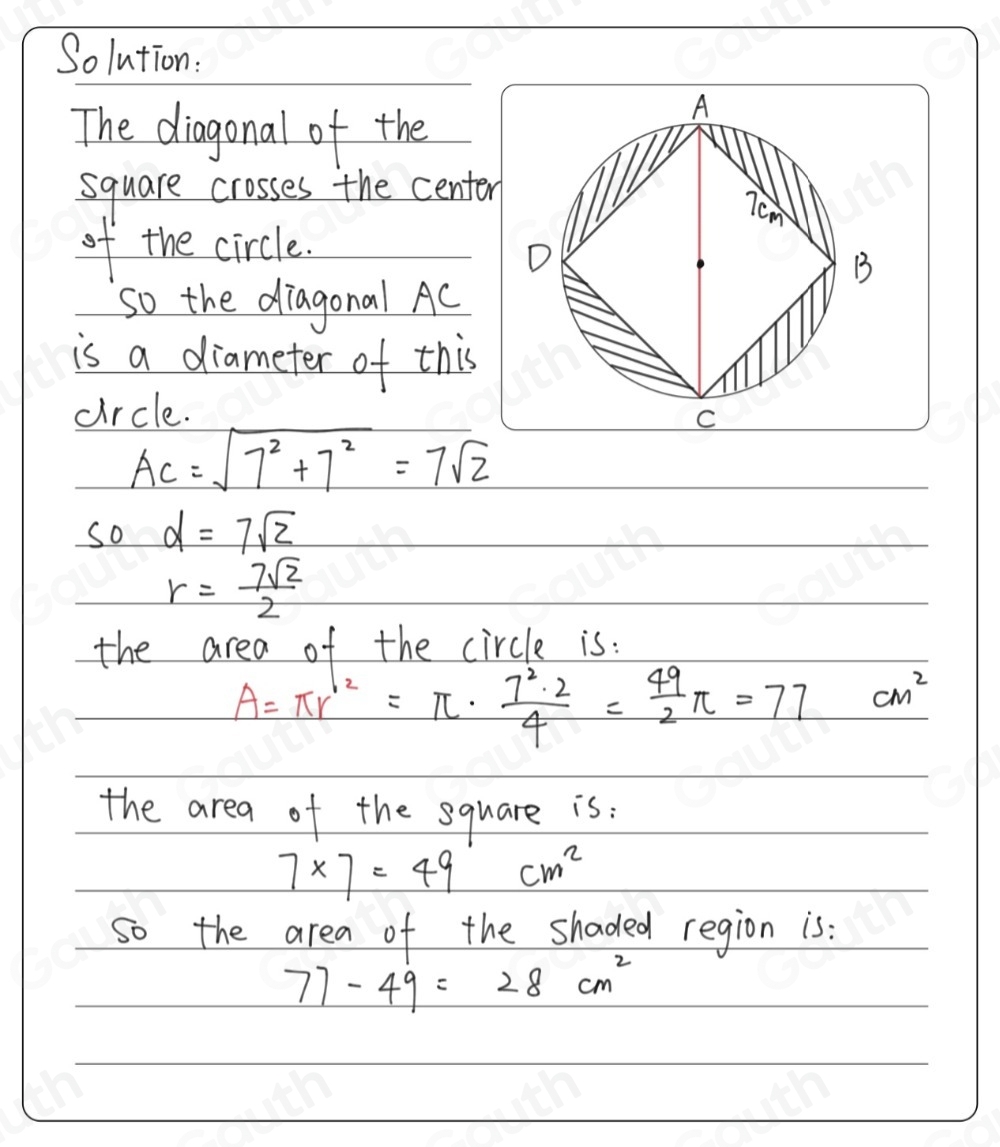 Solution:
The diagonal of the
square crosses the center
of the circle.
so the diagonal AC
is a diameter of this
circle.
A
7cm
D
B
C
AC = √7² + 7² = 7√2
so d = 7√2
r = 7√2/2
the area of the circle is:
A = πr² = π · 7²·2/4 = 49/2 π = 77 cm²
the area of the square is:
7 × 7 = 49 cm²
So the area of the shaded region is:
77 - 49 = 28 cm²
Gauth